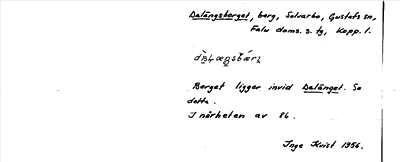 Dalängsberget, berg, Solvarbo, Gustafs sn,
Falu doms. s. tg, Kopp. l.
Berget ligger invid Dalänget. Se
detta.
I närheten av 86.
Inge Kvist 1956.